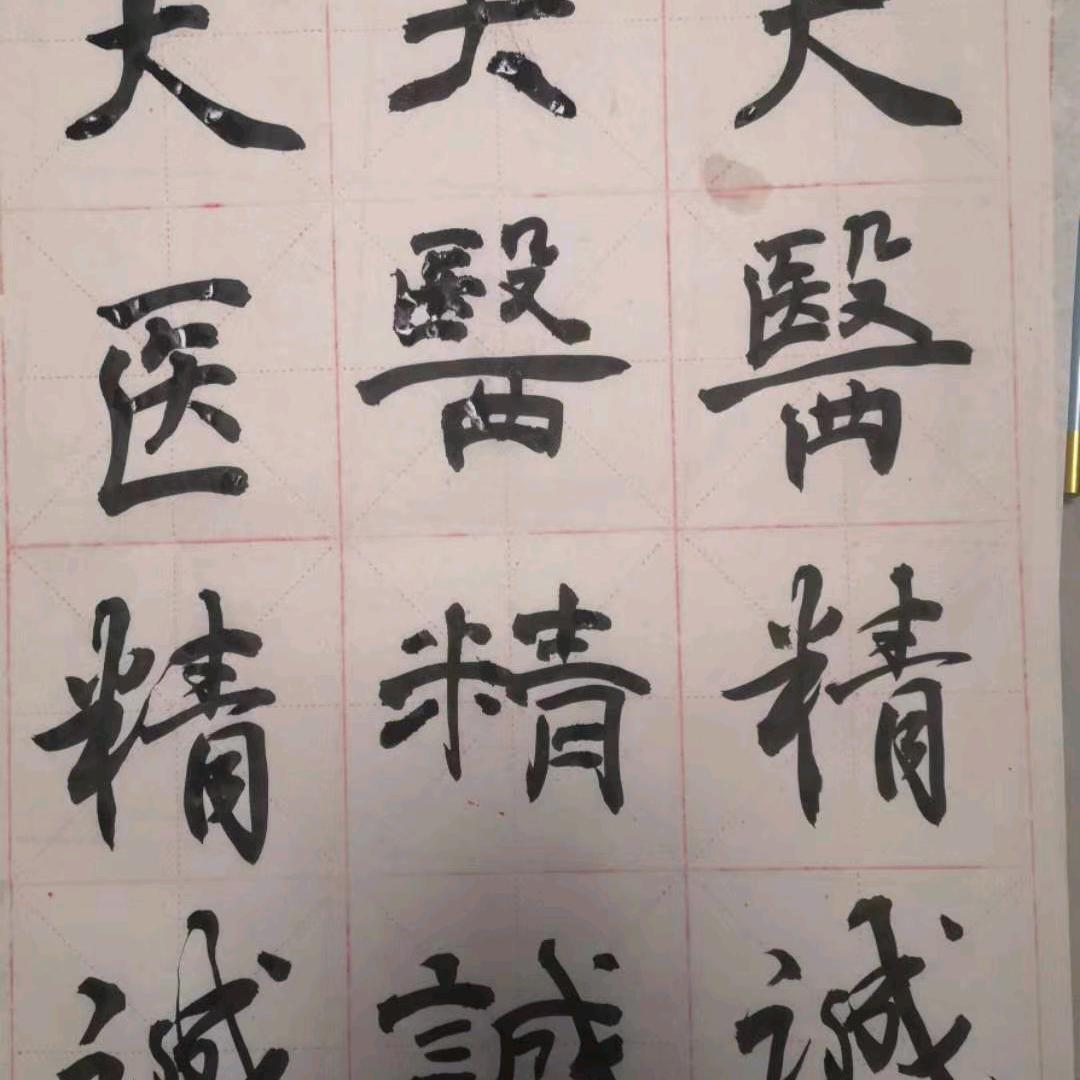 大醫精诚
大醫精誠
大医精诚